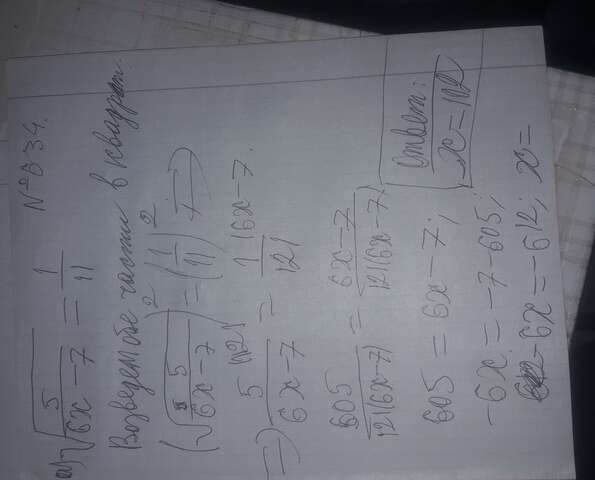 №834.
а) √(5/(6x-7)) = 1/11
Возведем обе части в квадрат.
(√(5/(6x-7)))² = (1/11)² ⟹
⟹ 5/(6x-7) |121 = 1/121 |6x-7.
605/(121(6x-7)) = (6x-7)/(121(6x-7))
605 = 6x-7;
-6x = -7-605;
-6x = -612; x =
Ответ:
x=102